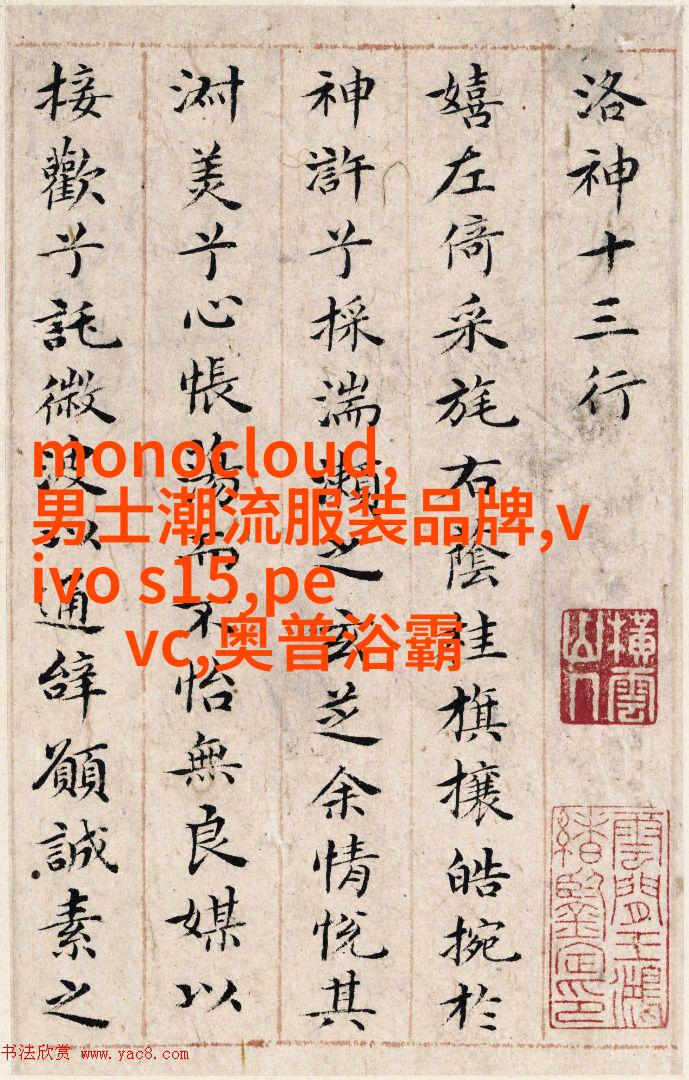 洛神十三行
嬉左倚采旄右蔭桂旗攘皓捥於
神滸兮採湍瀨之玄芝余情悅其
淑美兮心悵蕩而不怡無良媒以
接歡兮託微波以通辭願誠素之
monocloud,
男士潮流服装品牌,v
ivo s15,pe
vc,奥普浴霸
橫雲山人
雲間王鴻緒鑒定印
书法欣赏 www.yac8.com